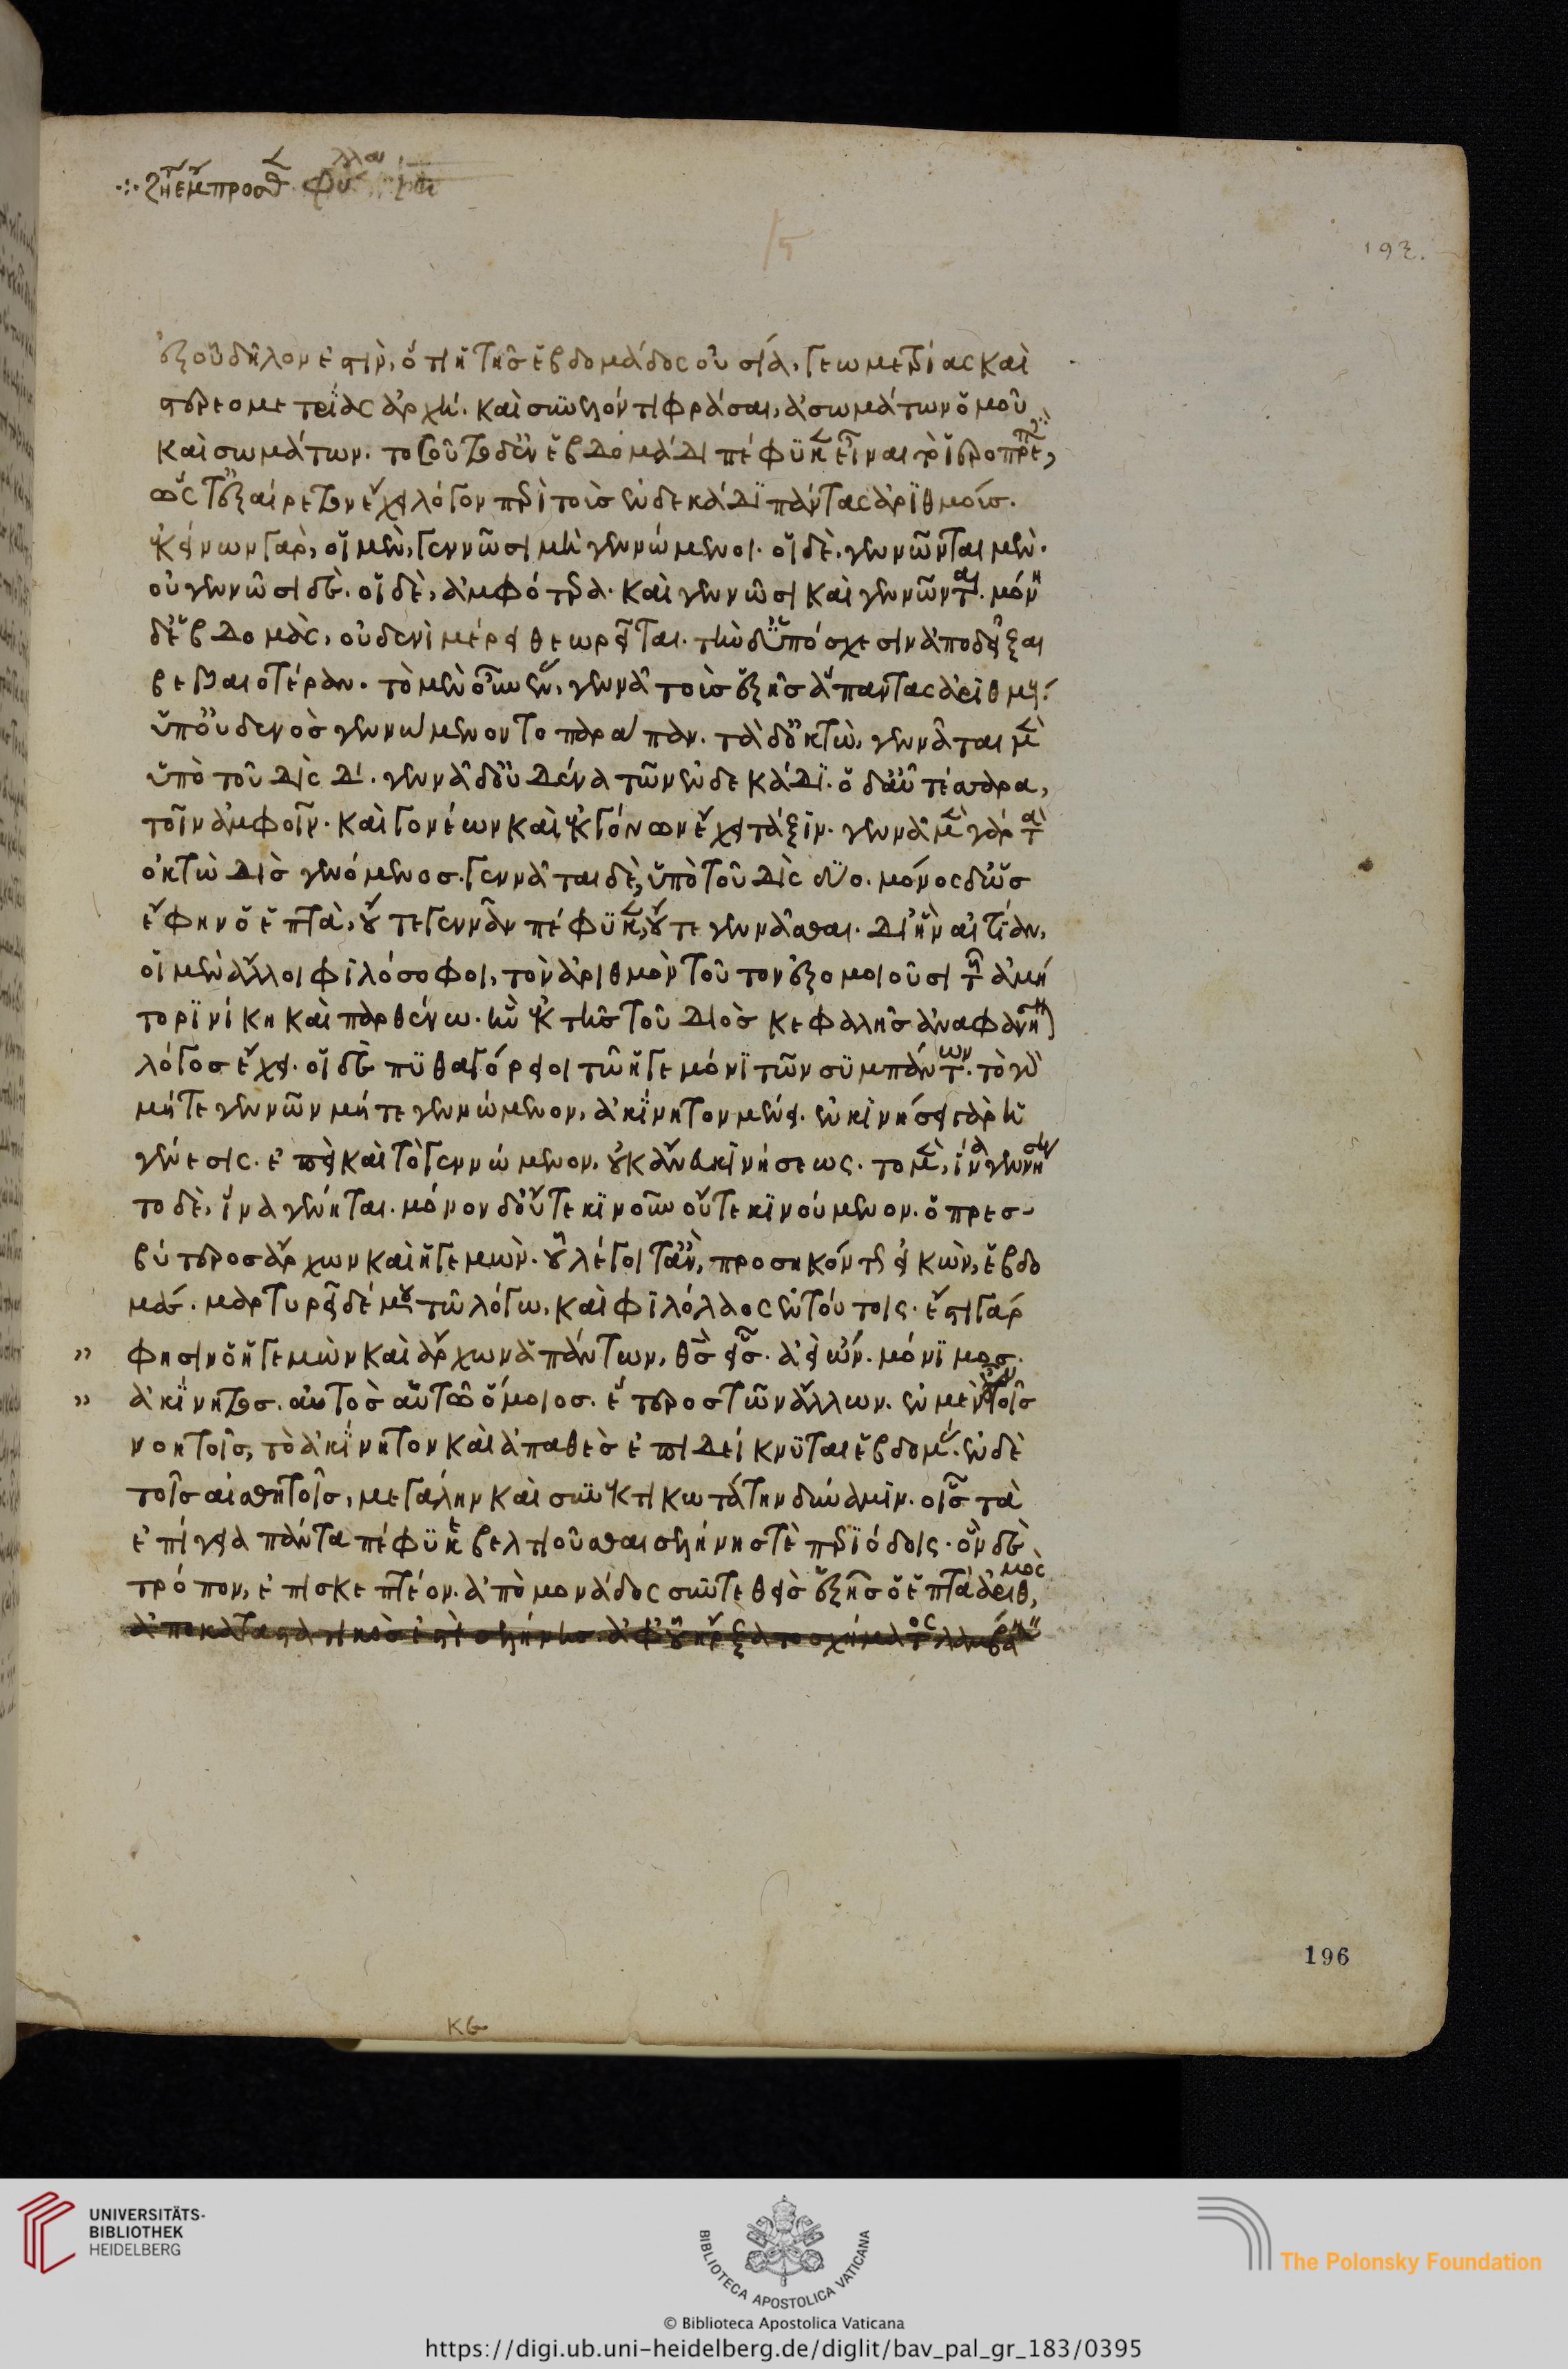 ∴ ζητ ἔμπροσθ
193.
ἐξ οὗ δῆλον ἐστὶν, ὅτι ἡ τῆς ἑβδομάδος οὐσία, γεωμετρίας καὶ
στερεομετρίας ἀρχή. καὶ συνελόντι φράσαι, ἀσωμάτων ὁμοῦ
καὶ σωμάτων. τοσοῦτο δ' ἐν ἑβδομάδι πέφυκ εἶναι τὸ ἱεροπρεπ,
ὥστ' ἐξαίρετον ἔχει λόγον περὶ τοὺς ἐν δεκάδι πάντας ἀριθμούς.
ἐκείνων γὰρ, οἱ μὲν, γεννῶσι μὴ γεννώμενοι. οἱ δὲ, γεννῶνται μὲν.
οὐ γεννῶσι δέ. οἱ δὲ, ἀμφότερα. καὶ γεννῶσι καὶ γεννῶνται. μόνη
δ' ἑβδομὰς, οὐδενὶ μέρει θεωρεῖται. τὴν δ' ὑπόσχεσιν ἀποδείξαι
βεβαιοτέραν. τὸ μὲν οὖν ἓν, γεννᾶ τοὺς ἑξῆς ἅπαντας ἀριθμού
ὑπ' οὐδενὸς γεννώμενον τὸ παράπαν. τὰ δ' ὀκτὼ, γεννᾶται μὲ
ὑπὸ τοῦ δὶς δ. γεννᾶ δ' οὐδένα τῶν ἐν δεκάδι. ὁ δ' αὖ τέσσαρα,
τοῖν ἀμφοῖν. καὶ γονέων καὶ ἐκγόνων ἔχει τάξιν. γεννᾶ μὲ γὰρ τ
ὀκτὼ δὶς γενόμενος. γεννᾶται δὲ, ὑπὸ τοῦ δὶς δύο. μόνος δ' ὡς
ἔφην ὁ ἑπτὰ, οὔτε γεννᾶν πέφυκ, οὔτε γεννᾶσθαι. δι' ἣν αἰτίαν,
οἱ μὲν ἄλλοι φιλόσοφοι, τὸν ἀριθμὸν τοῦτον ἐξομοιοῦσι τῇ ἀμή
τορι νίκη καὶ παρθένω. ἣν ἐκ τῆς τοῦ διὸς κεφαλῆς ἀναφανῆν
λόγος ἔχει. οἱ δὲ πυθαγόρειοι τῶ ἡγεμόνι τῶν συμπάντων. τὸ γὰ
μήτε γεννῶν μήτε γεννώμενον, ἀκίνητον μένει. ἐν κινήσει γὰρ ἡ
γένεσις. ἐπεὶ καὶ τὸ γεννώμενον, οὐκ ἄνευ κινήσεως. τὸ μὲ, ἵνα γεννήσῃ
τὸ δὲ, ἵνα γένηται. μόνον δ' οὔτε κινοῦν οὔτε κινούμενον. ὁ πρεσ-
βύτερος ἄρχων καὶ ἡγεμών. οὗ λέγοιτ' ἂν, προσηκόντως εἰκὼν, ἑβδο
μάς. μαρτυρεῖ δέ μου τῶ λόγω, καὶ φιλόλαος ἐν τούτοις. ἔστι γάρ
" φησιν ὁ ἡγεμὼν καὶ ἄρχων ἁπάντων, θς εἷς. ἀεὶ ὤν. μόνιμος.
" ἀκίνητος. αὐτὸς αὑτῶ ὅμοιος. ἕτερος τῶν ἄλλων. ἐν μὲν οὖν τοῖς
νοητοῖς, τὸ ἀκίνητον καὶ ἀπαθὲς ἐπιδείκνυται ἑβδομά. ἐν δὲ
τοῖς αἰσθητοῖς, μεγάλην καὶ συνεκτικωτάτην δύναμιν. οἷς τὰ
ἐπίγεια πάντα πέφυκε βελτιοῦσθαι σελήνης τὲ περιόδοις. ὃν δὲ
τρόπον, ἐπισκεπτέον. ἀπὸ μονάδος συντεθεὶς ἑξῆς ὁ ἑπτὰ ἀριθμὸς,
196
UNIVERSITÄTS-
BIBLIOTHEK
HEIDELBERG
BIBLIOTECA APOSTOLICA VATICANA
The Polonsky Foundation
© Biblioteca Apostolica Vaticana
https://digi.ub.uni-heidelberg.de/diglit/bav_pal_gr_183/0395